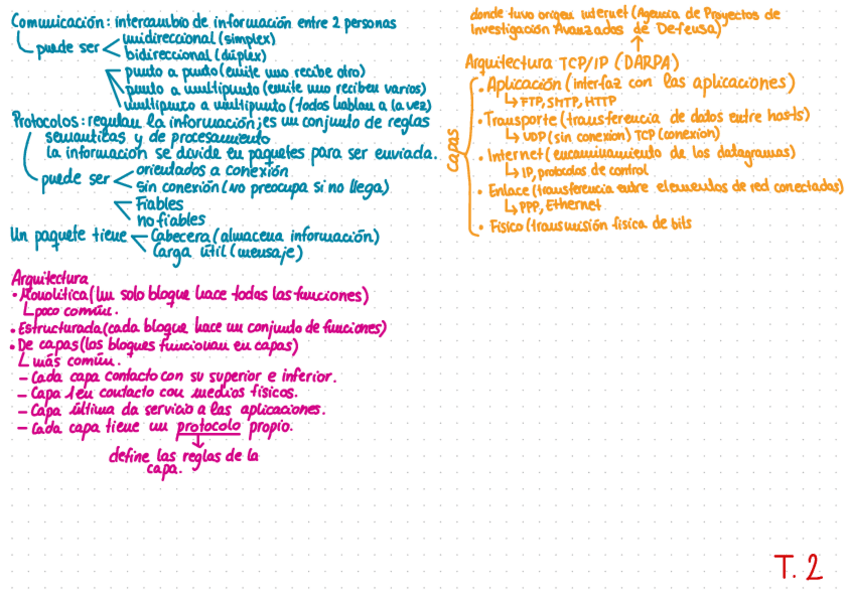 Comunicación: intercambio de información entre 2 personas
puede ser
unidireccional (simplex)
bidireccional (dúplex)
punto a punto (emite uno recibe otro)
punto a multipunto (emite uno reciben varios)
multipunto a multipunto (todos hablan a la vez)
Protocolos: regulan la información; es un conjunto de reglas
semánticas y de procesamiento
la información se divide en paquetes para ser enviada.
puede ser
orientados a conexión
sin conexión (no preocupa si no llega)
Fiables
no fiables
Un paquete tiene
Cabecera (almacena información)
Carga útil (mensaje)
Arquitectura
• Monolítica (un solo bloque hace todas las funciones)
poco común.
• Estructurada (cada bloque hace un conjunto de funciones)
• De capas (los bloques funcionan en capas)
más común.
- Cada capa contacto con su superior e inferior.
- Capa 1 en contacto con medios físicos.
- Capa última da servicio a las aplicaciones.
- Cada capa tiene un protocolo propio.
define las reglas de la
capa.
donde tuvo origen internet (Agencia de Proyectos de
Investigación Avanzados de Defensa)
Arquitectura TCP/IP (DARPA)
Capas
• Aplicación (interfaz con las aplicaciones)
FTP, SMTP, HTTP
• Transporte (transferencia de datos entre hosts)
UDP (sin conexion) TCP (conexión)
• Internet (encaminamiento de los datagramas)
IP, protocolos de control
• Enlace (transferencia entre elementos de red conectadas)
PPP, Ethernet
• Físico (transmisión física de bits
T. 2